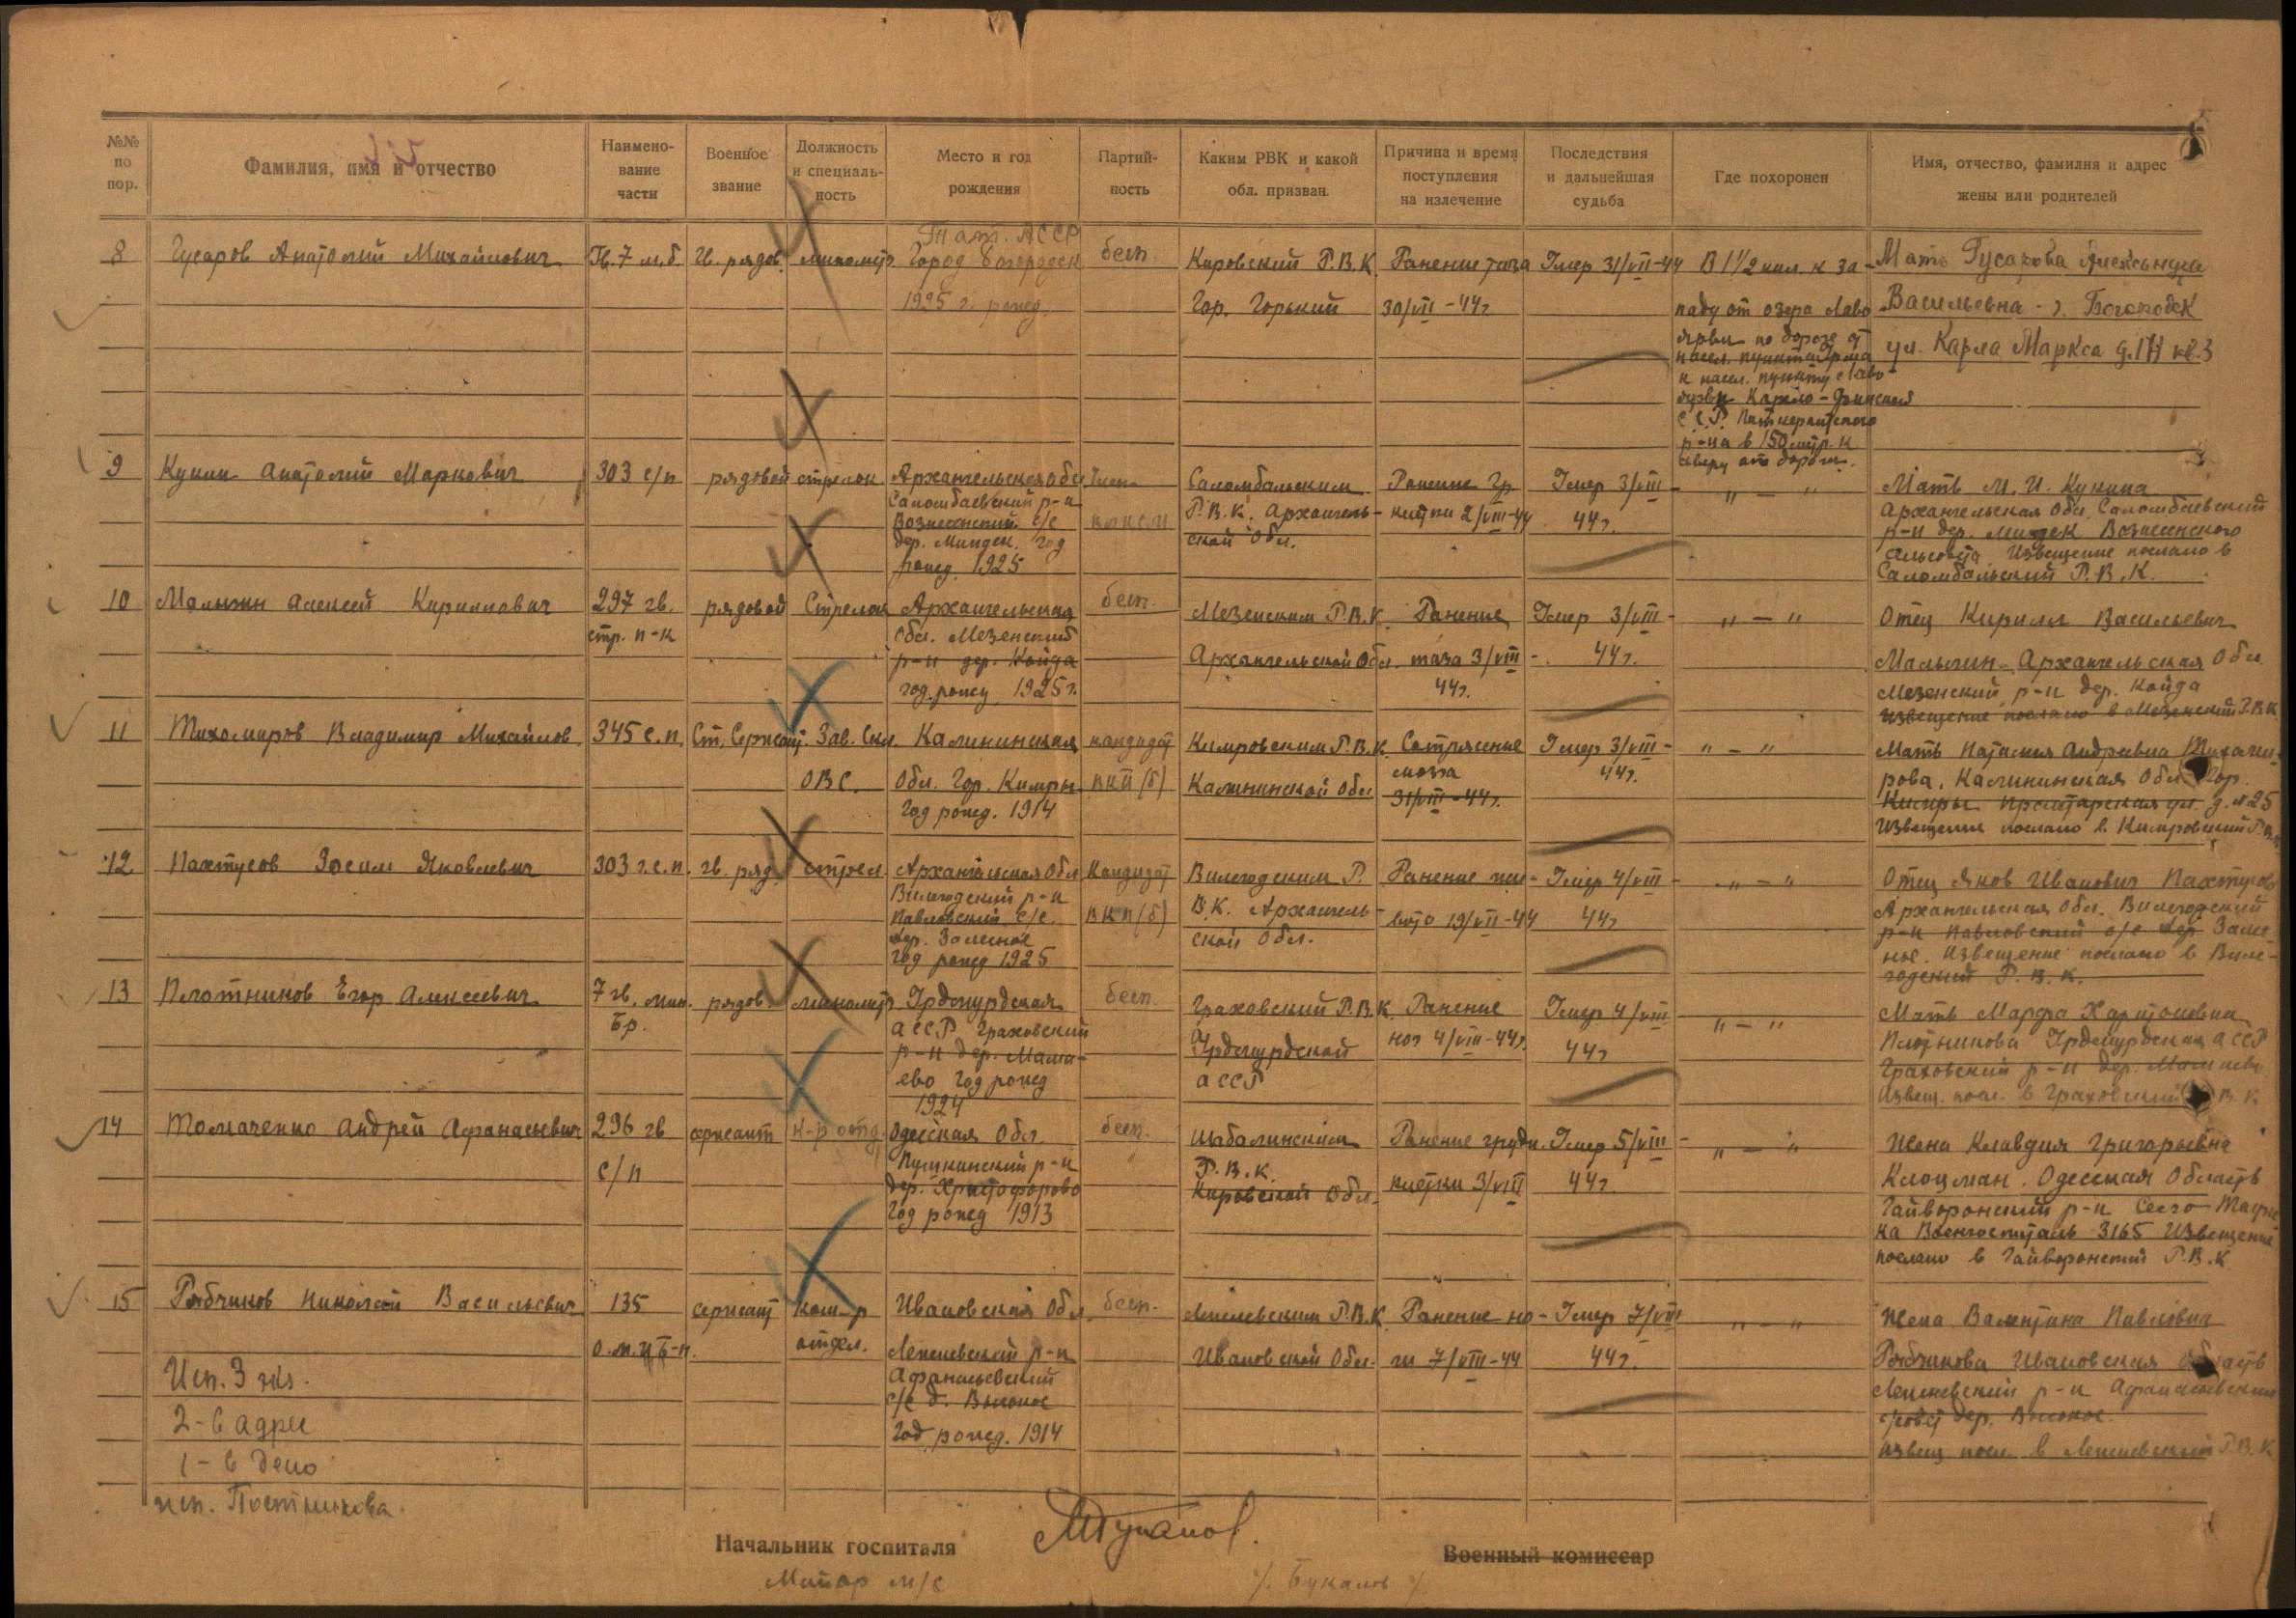 №№ по пор.
Фамилия, имя и отчество
Наимено-
вание
части
Военное
звание
Должность
и специаль-
ность
Место и год
рождения
Партий-
ность
Каким РВК и какой
обл. призван.
Причина и время
поступления
на излечение
Последствия
и дальнейшая
судьба
Где похоронен
Имя, отчество, фамилия и адрес
жены или родителей
8
Гусаров Анатолий Михайлович
Гв. 7 м.б.
Гв. рядов.
миномётч
Тат. АССР
Город Богородск
1925 г. рожд.
бесп.
Кировский Р.В.К.
Гор. Горький
Ранение таза
30/VII-44г
Умер 31/VII-44
В 1 1/2 килл. к за-
паду от озера Лаво
ярви по дороге от
насел. пункта
к насел. пункту Лаво-
ярви Карело-Финской
С.С.Р. Питкерантского
р-на в 150 метр. к
северу от дороги.
Мать Гусарова Александра
Васильевна - г. Богородск
ул. Карла Маркса кв. 3
9
Кунин Анатолий Маркович
303 с/п
рядовой
стрелок
Архангельская обл
Саломбаевский р-н
Вознесенский с/с
дер. Миндек. год
рожд. 1925
Член
Саломбальским
Р.В.К. Архангель-
ской Обл.
Ранение Гр.
клетки 2/VIII-44
Умер 3/VIII-
44г.
" - "
Мать М. И. Кунина
Архангельская Обл. Саломбаевский
р-н дер. Миндек Вознесенского
сельсовета Извещение послано в
Саломбальский Р.В.К.
10
Малыгин Алексей Кириллович
297 гв.
стр. п-к
рядовой
Стрелок
Архангельская
Обл. Мезенский
р-н дер. Койда
год. рожд 1925г.
бесп.
Мезенским Р.В.К.
Архангельской Обл.
Ранение
таза 3/VIII-
44г.
Умер 3/VIII-
44г.
" - "
Отец Кирилл Васильевич
Малыгин - Архангельская Обл.
Мезенский р-н дер. Койда
извещение послано в Мезенский Р.В.К
11
Тихомиров Владимир Михайлов.
345 с.п.
Ст. Сержант
Зав. Скл.
ОВС.
Калининская
Обл. Гор. Кимры
Год рожд. 1914
кандидат
ВКП(б)
Кимровским Р.В.К.
Калининской Обл
Сотрясение
мозга
31/VIII-44г.
Умер 3/VIII-
44г.
" - "
Мать Наталья Андревна Тихоми-
рова. Калининская Обл. Гор.
Кимры Пролетарская ул. д. №25
Извещение послано в Кимровский Р.В.К
12
Пахтусов Зосим Яковлевич
303 г.с.п.
гв. ряд.
стрел
Архангельская Обл
Вилегодский р-н
Павловский с/с.
дер. Залесное
год рожд 1925
Кандидат
ВКП(б)
Вилегодским Р.
В.К. Архангель-
ской Обл.
Ранение жи-
вота 19/VII-44
Умер 4/VIII-
44г
" - "
Отец Яков Иванович Пахтусов
Архангельская Обл. Вилегодский
р-н Павловский с/с дер Залес-
ное. Извещение послано в Виле-
годский Р.В.К.
13
Плотников Егор Алексеевич
7 гв. мин.
Бр.
рядов.
миномётч
Удмурдская
АССР Граховский
р-н дер. Мама-
ево Год рожд
1924
бесп.
Граховский Р.В.К.
Удмурдской
АССР
Ранение
ног 4/VIII-44г.
Умер 4/VIII
44г
" - "
Мать Марфа Харитоновна
Плотникова Удмурдская АССР
Граховский р-н дер. Мамаево
Извещ. посл. в Граховский Р.В.К
14
Толмаченко Андрей Афанасьевич
296 гв
с/п
сержант
к-р отд
Одесская Обл
Пушкинский р-н
дер. Христофорово
Год рожд 1913
бесп.
Шабалинским
Р.В.К.
Кировской Обл.
Ранение грудн.
клетки 3/VIII
Умер 5/VIII-
44г.
" - "
Жена Клавдия Григорьевна
Клоцман. Одесская Область
Гайворонский р-н Село
Военгоспиталь 3165 Извещение
послано в Гайворонский Р.В.К
15
Рябчиков Николай Васильевич
135
сержант
ком-р
отдел.
Ивановская Обл
Лежневский р-н
Афанасьевский
с/с д. Высокое
Год рожд. 1914
бесп.
Лежневским Р.В.К.
Ивановской Обл.
Ранение но-
ги 7/VIII-44
Умер 7/VIII
44г.
" - "
Жена Валентина Павловна
Рябчикова Ивановская область
Лежневский р-н Афанасьевский
с/совет дер. Высокое.
извещ. посл. в Лежневский Р.В.К
Исп. 3 экз.
2 - в адрес
1 - в дело
исп. Постникова.
Начальник госпиталя
Майор м/с
Военный комиссар
/. Букалов ./